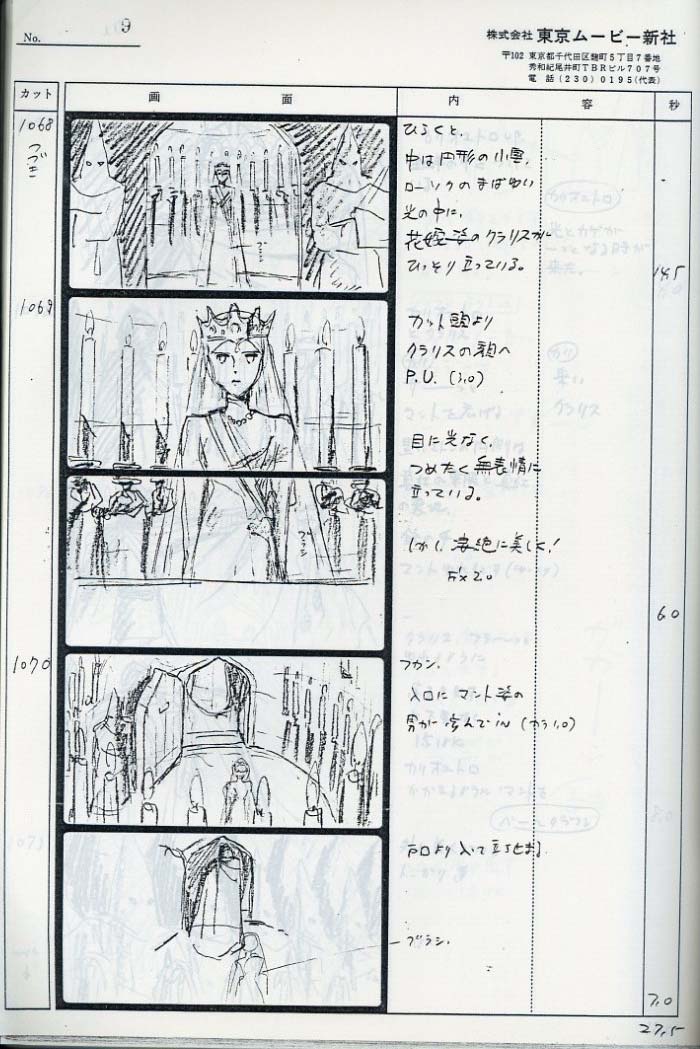 No. 9
株式会社 東京ムービー新社
〒102 東京都千代田区麹町5丁目7番地
秀和紀尾井町TBRビル707号
電話(230)0195(代表)
カット 画面 内容 秒
1068
つづき
ひらくと、
中は円形の小堂、
ローソクのまばゆい
光の中に、
花嫁姿のクラリスが
ひっそり立っている。
14.5
ブラシ
1069
カット頭より
クラリスの顔へ
P.U. (3.0)
目に光なく、
つめたく無表情に
立っている。
しかし、凄絶に美しく!
Fix 2.0
ブラシ
6.0
1070
フカン.
入口にマント姿の
男が in
戸口より入って立ち止まる
ブラシ.
7.0
27.5